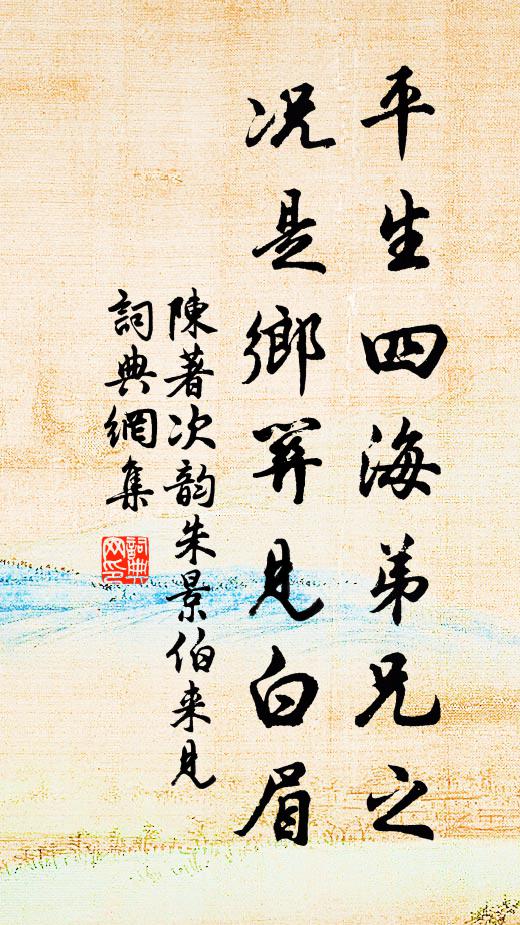 平生四海弟兄之
况是鄉関見白眉
陳著次韵朱景伯来見
詞典網集
詞典网印